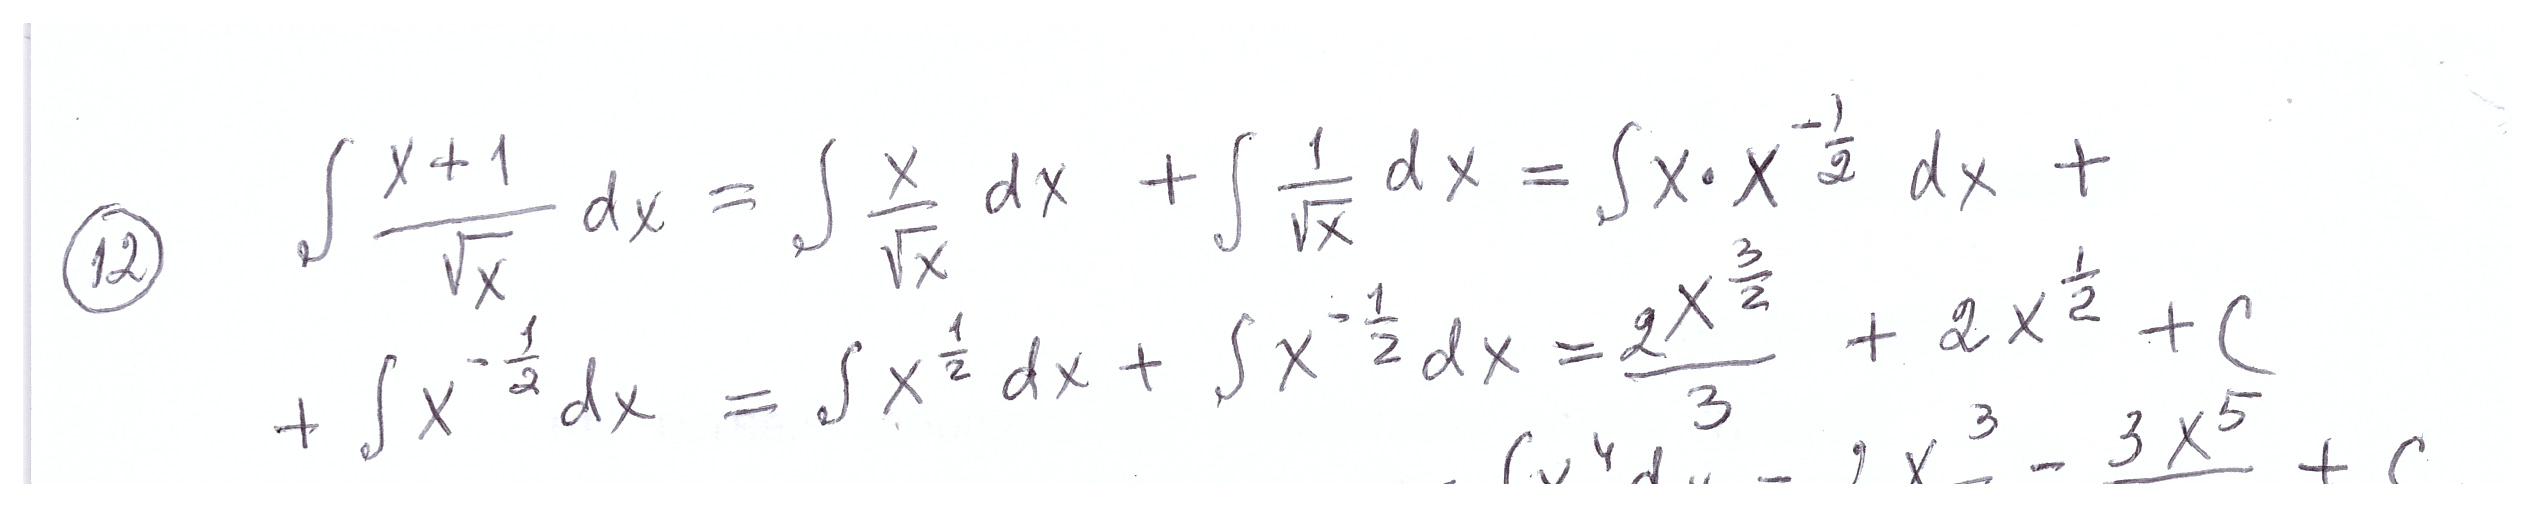 ⑫ ∫ (x+1)/√x dx = ∫ x/√x dx + ∫ 1/√x dx = ∫ x·x^(-1/2) dx +
+ ∫ x^(-1/2) dx = ∫ x^(1/2) dx + ∫ x^(-1/2) dx = 2x^(3/2)/3 + 2x^(1/2) + C